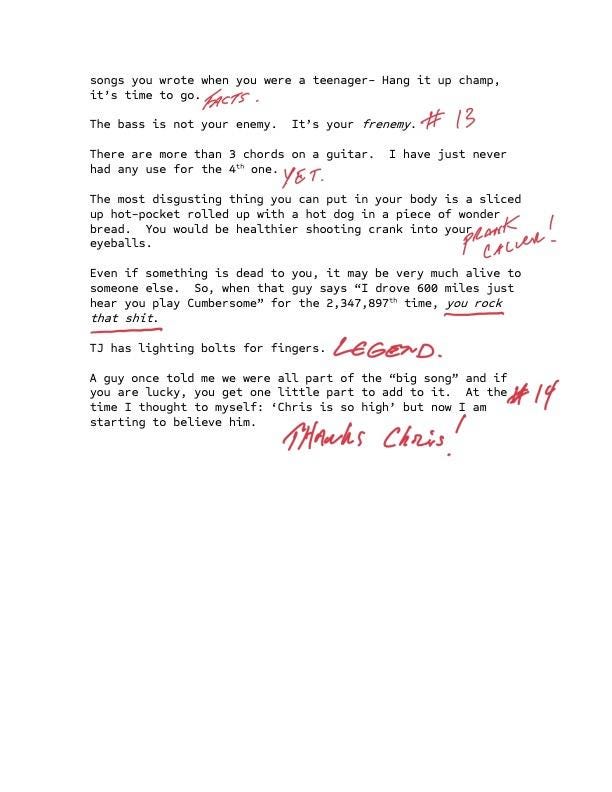 songs you wrote when you were a teenager- Hang it up champ,
it's time to go. FACTS.
The bass is not your enemy.  It's your frenemy. # 13
There are more than 3 chords on a guitar.  I have just never
had any use for the 4th one. YET.
The most disgusting thing you can put in your body is a sliced
up hot-pocket rolled up with a hot dog in a piece of wonder
bread.  You would be healthier shooting crank into your
eyeballs.
PRANK
CALLER!
Even if something is dead to you, it may be very much alive to
someone else.  So, when that guy says “I drove 600 miles just
hear you play Cumbersome” for the 2,347,897th time, you rock
that shit.
TJ has lighting bolts for fingers. LEGEND.
A guy once told me we were all part of the “big song” and if
you are lucky, you get one little part to add to it.  At the # 14
time I thought to myself: ‘Chris is so high’ but now I am
starting to believe him.
THANKS Chris!